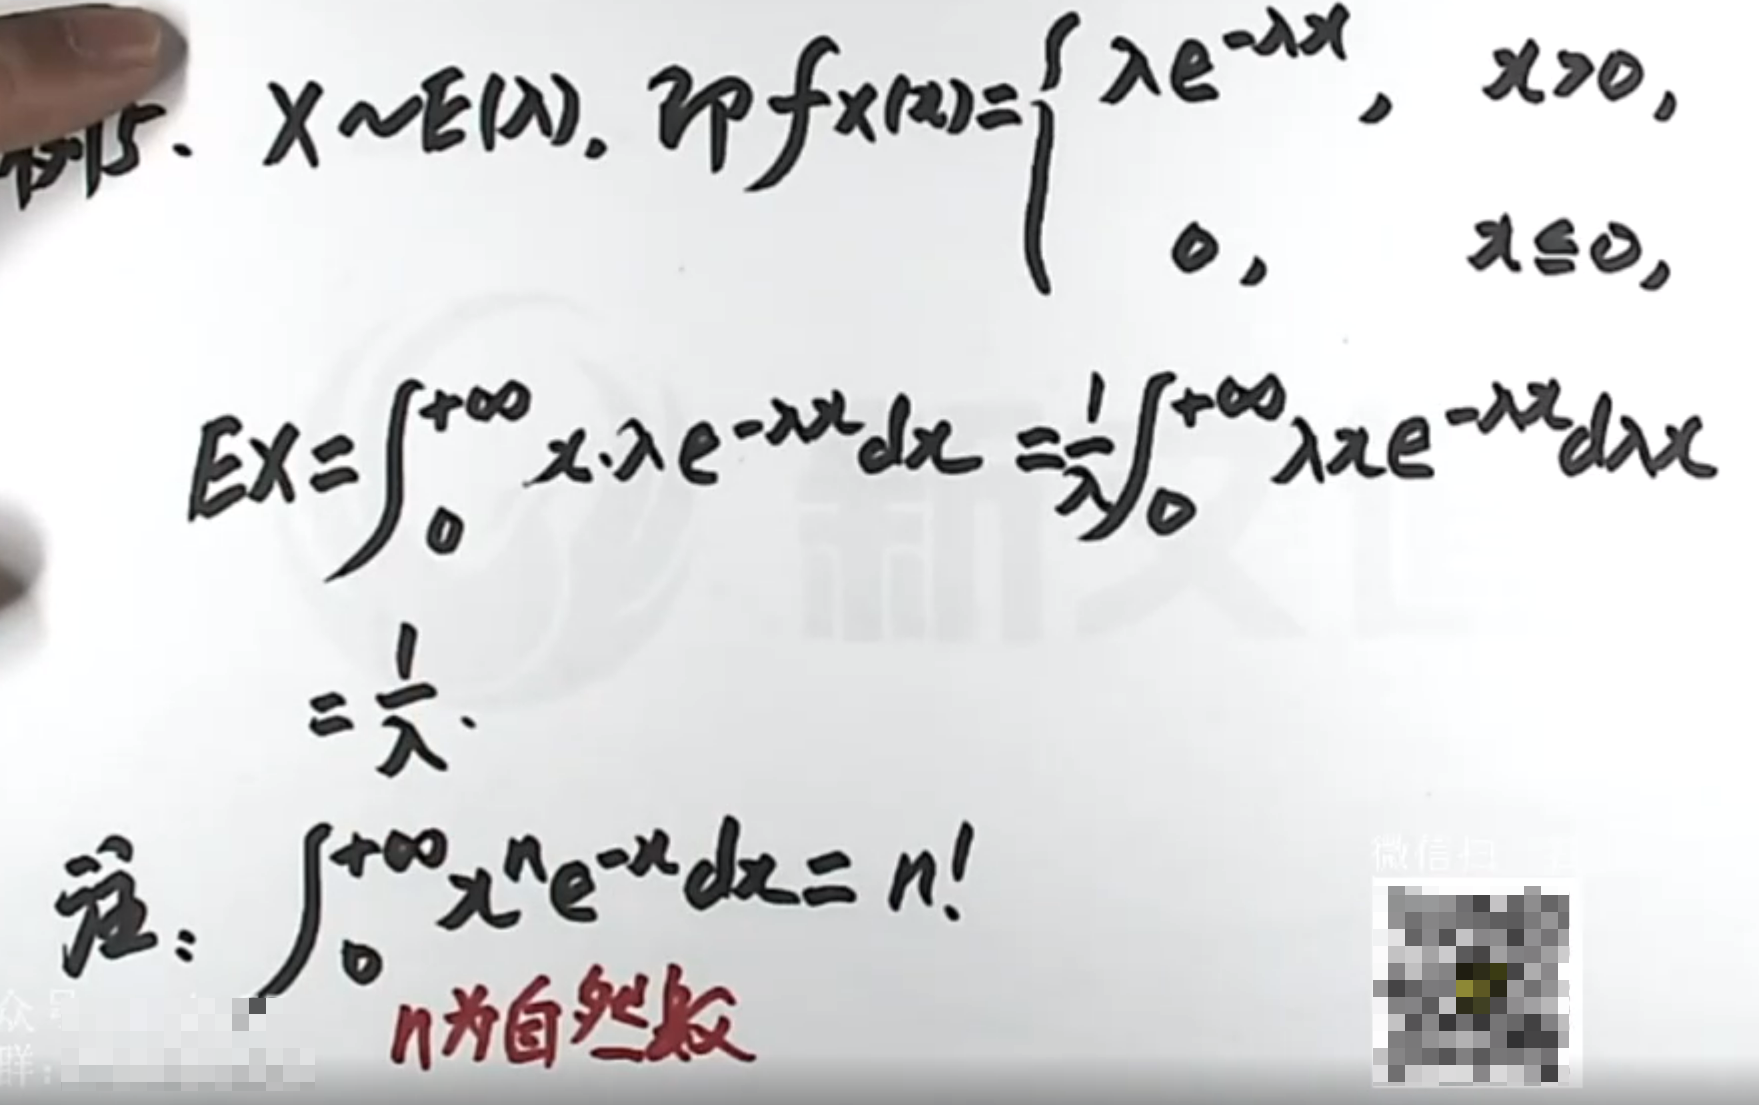 15. X~E(λ). 即 f_X(x)={ λe^{-λx}, x>0,
0, x≤0,
EX=∫_0^{+∞} x·λe^{-λx}dx =1/λ∫_0^{+∞} λxe^{-λx}dλx
=1/λ.
注: ∫_0^{+∞} x^n e^{-x}dx= n!
n为自然数
微信扫
众号
群: